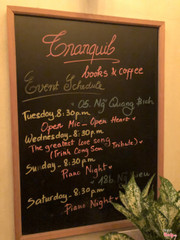 Tranquil
books & coffee
Event Schedule
CS. Ng Quang Bich
Tuesday 8:30pm
Open Mic - Open Heart
Wednesday - 8:30pm
The greatest love song
(Trinh Cong Son Tribute)
Sunday - 8:30pm
Piano Night
18b Ng
Saturday - 8:30pm
Piano Night